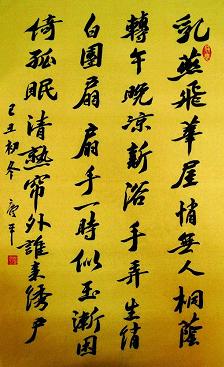 乳燕飛華屋悄無人桐蔭
轉午晚凉新浴手弄生綃
白團扇扇手一時似玉漸困
倚孤眠清熟帘外誰来綉户
己丑初冬